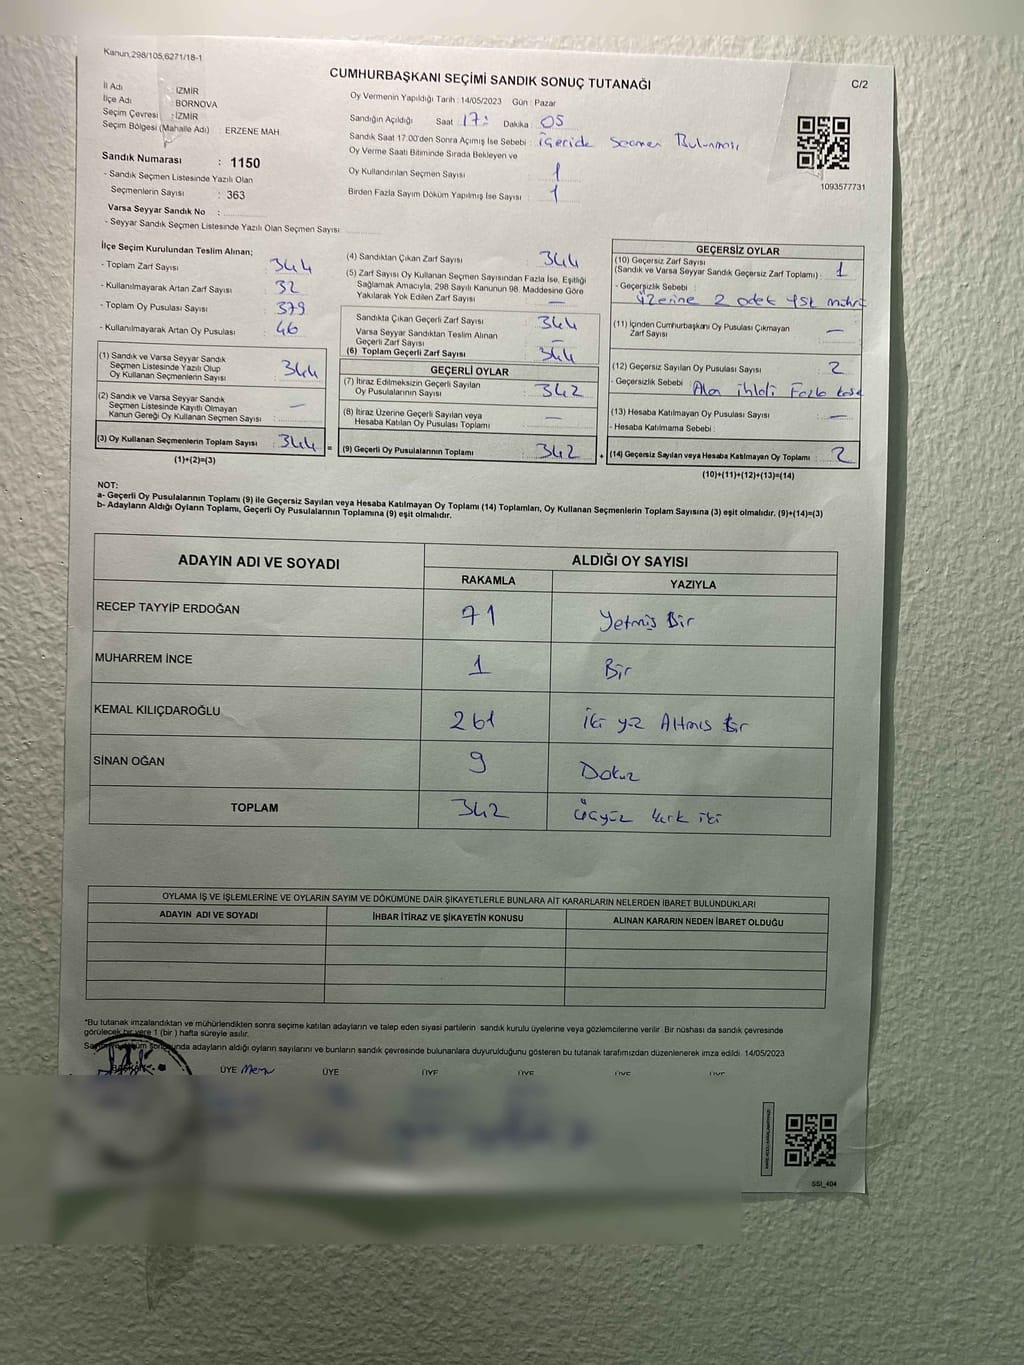 Kanun,298/105,6271/18-1
CUMHURBAŞKANI SEÇİMİ SANDIK SONUÇ TUTANAĞI
C/2
İl Adı : İZMİR
İlçe Adı : BORNOVA
Seçim Çevresi : İZMİR
Seçim Bölgesi (Mahalle Adı) : ERZENE MAH.
Sandık Numarası : 1150
- Sandık Seçmen Listesinde Yazılı Olan
Seçmenlerin Sayısı : 363
Varsa Seyyar Sandık No :
- Seyyar Sandık Seçmen Listesinde Yazılı Olan Seçmen Sayısı
Oy Vermenin Yapıldığı Tarih : 14/05/2023 Gün : Pazar
Sandığın Açıldığı Saat 17: Dakika : 05
Sandık Saat 17:00'den Sonra Açımış İse Sebebi : İçeride Seçmen Bulunması
Oy Verme Saati Bitiminde Sırada Bekleyen ve
Oy Kullandırılan Seçmen Sayısı : 1
Birden Fazla Sayım Döküm Yapılmış İse Sayısı : 1
1093577731
İlçe Seçim Kurulundan Teslim Alınan;
- Toplam Zarf Sayısı : 344
- Kullanılmayarak Artan Zarf Sayısı : 32
- Toplam Oy Pusulası Sayısı : 379
- Kullanılmayarak Artan Oy Pusulası : 46
(1) Sandık ve Varsa Seyyar Sandık
Seçmen Listesinde Yazılı Olup
Oy Kullanan Seçmenlerin Sayısı : 344
(2) Sandık ve Varsa Seyyar Sandık
Seçmen Listesinde Kayıtlı Olmayan
Kanun Gereği Oy Kullanan Seçmen Sayısı : —
(3) Oy Kullanan Seçmenlerin Toplam Sayısı : 344
(1)+(2)=(3)
=
(4) Sandıktan Çıkan Zarf Sayısı : 344
(5) Zarf Sayısı Oy Kullanan Seçmen Sayısından Fazla İse, Eşitliği
Sağlamak Amacıyla, 298 Sayılı Kanunun 98. Maddesine Göre
Yakılarak Yok Edilen Zarf Sayısı : —
Sandıkta Çıkan Geçerli Zarf Sayısı : 344
Varsa Seyyar Sandıktan Teslim Alınan
Geçerli Zarf Sayısı : —
(6) Toplam Geçerli Zarf Sayısı : 344
GEÇERLİ OYLAR
(7) İtiraz Edilmeksizin Geçerli Sayılan
Oy Pusulalarının Sayısı : 342
(8) İtiraz Üzerine Geçerli Sayılan veya
Hesaba Katılan Oy Pusulası Toplamı : —
(9) Geçerli Oy Pusulalarının Toplamı : 342
+
GEÇERSİZ OYLAR
(10) Geçersiz Zarf Sayısı
(Sandık ve Varsa Seyyar Sandık Geçersiz Zarf Toplamı) : 1
- Geçersizlik Sebebi :
Üzerine 2 adet
(11) İçinden Cumhurbaşkanı Oy Pusulası Çıkmayan
Zarf Sayısı : —
(12) Geçersiz Sayılan Oy Pusulası Sayısı : 2
- Geçersizlik Sebebi : Alan ihlali Fazla
(13) Hesaba Katılmayan Oy Pusulası Sayısı : —
- Hesaba Katılmama Sebebi :
(14) Geçersiz Sayılan veya Hesaba Katılmayan Oy Toplamı : 2
(10)+(11)+(12)+(13)=(14)
NOT:
a- Geçerli Oy Pusulalarının Toplamı (9) ile Geçersiz Sayılan veya Hesaba Katılmayan Oy Toplamı (14) Toplamları, Oy Kullanan Seçmenlerin Toplam Sayısına (3) eşit olmalıdır. (9)+(14)=(3)
b- Adayların Aldığı Oyların Toplamı, Geçerli Oy Pusulalarının Toplamına (9) eşit olmalıdır.
ADAYIN ADI VE SOYADI ALDIĞI OY SAYISI
RAKAMLA YAZIYLA
RECEP TAYYİP ERDOĞAN 71 Yetmiş Bir
MUHARREM İNCE 1 Bir
KEMAL KILIÇDAROĞLU 261 İki yüz Altmış Bir
SİNAN OĞAN 9 Dokuz
TOPLAM 342 Üçyüz kırk iki
OYLAMA İŞ VE İŞLEMLERİNE VE OYLARIN SAYIM VE DÖKÜMÜNE DAİR ŞİKAYETLERLE BUNLARA AİT KARARLARIN NELERDEN İBARET BULUNDUKLARI
ADAYIN ADI VE SOYADI İHBAR İTİRAZ VE ŞİKAYETİN KONUSU ALINAN KARARIN NEDEN İBARET OLDUĞU
*Bu tutanak imzalandıktan ve mühürlendikten sonra seçime katılan adayların ve talep eden siyasi partilerin sandık kurulu üyelerine veya gözlemcilerine verilir. Bir nüshası da sandık çevresinde
görülecek bir yere 1 (bir ) hafta süreyle asılır.
sonunda adayların aldığı oyların sayılarını ve bunların sandık çevresinde bulunanlara duyurulduğunu gösteren bu tutanak tarafımızdan düzenlenerek imza edildi. 14/05/2023
BAŞKAN ÜYE ÜYE ÜYE ÜYE ÜYE ÜYE
SSI_404